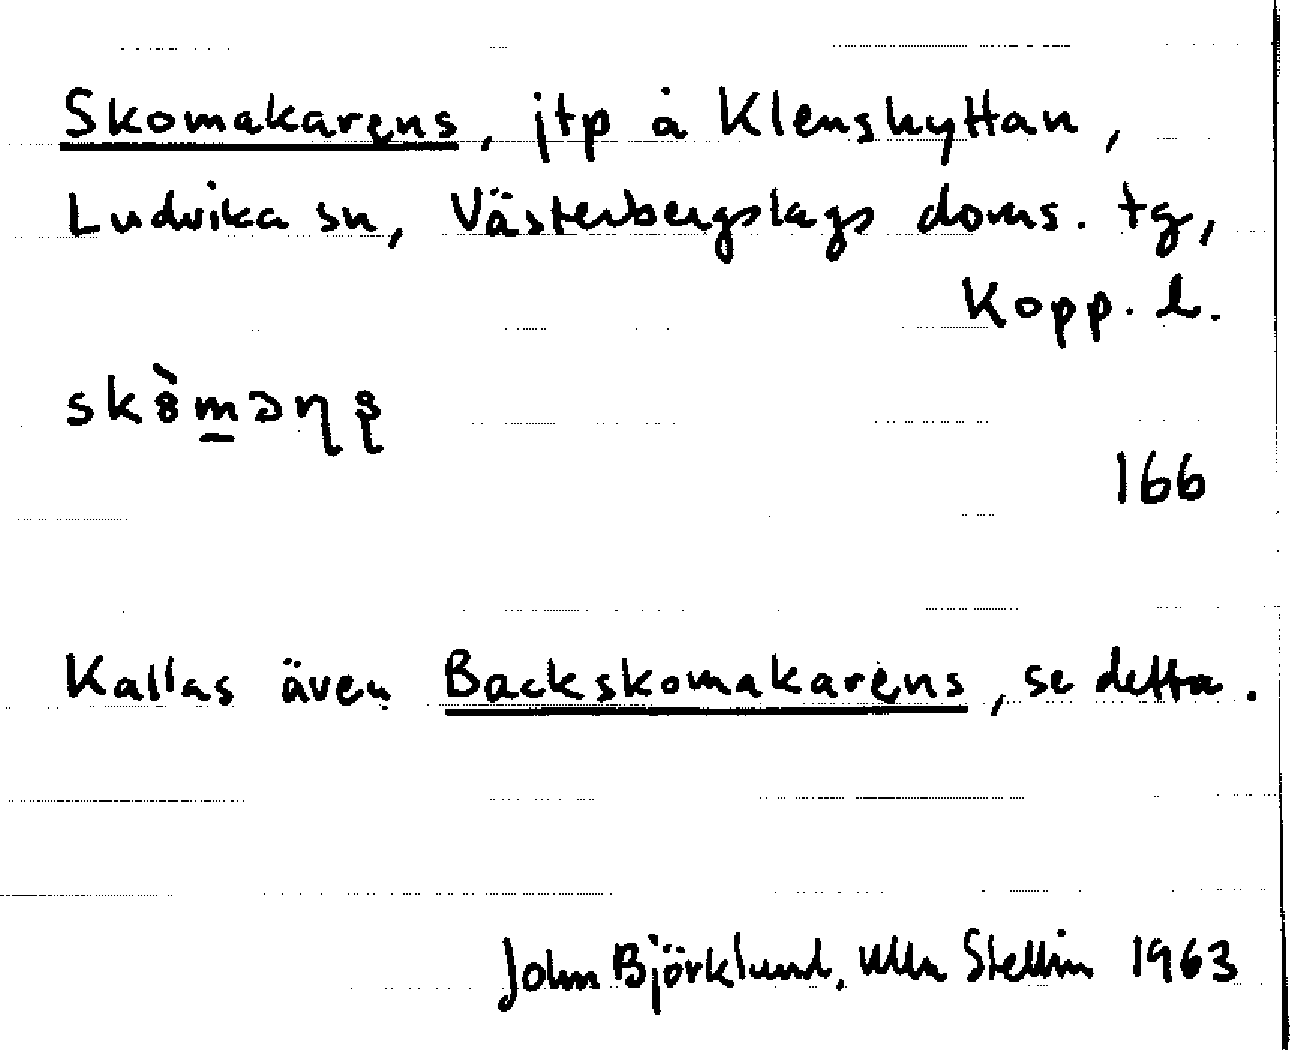 Skomakarens, jtp å Klenshyttan,
Ludvika sn, Västerbergslags doms. tg,
Kopp. l.
166
Kallas även Backskomakarens, se detta.
John Björklund, Ulla Stellin 1963